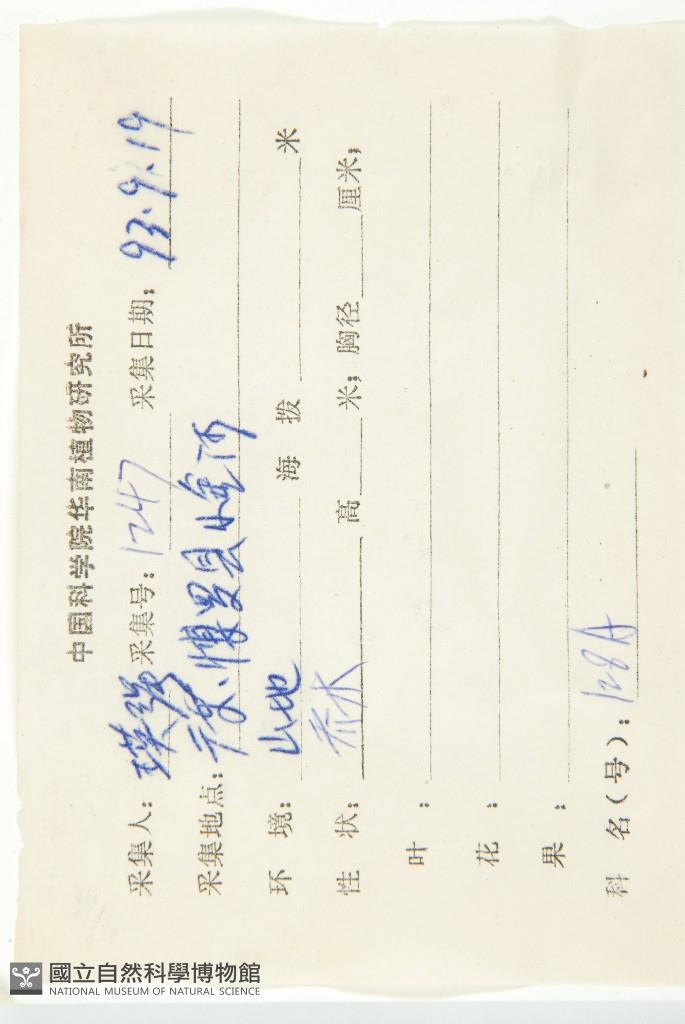 中国科学院华南植物研究所
采集人：瑛强 采集号：1247 采集日期：93.9.19
采集地点：广东、博罗县小金河
环 境：山地 海 拨 米
性 状：乔木 高 米；胸径 厘米；
叶 ：
花 ：
果 ：
科 名（号）：128A
國立自然科學博物館
NATIONAL MUSEUM OF NATURAL SCIENCE